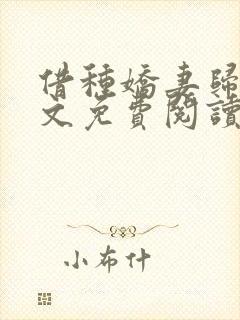 借種嬌妻歸
文免費閱讀
小布什